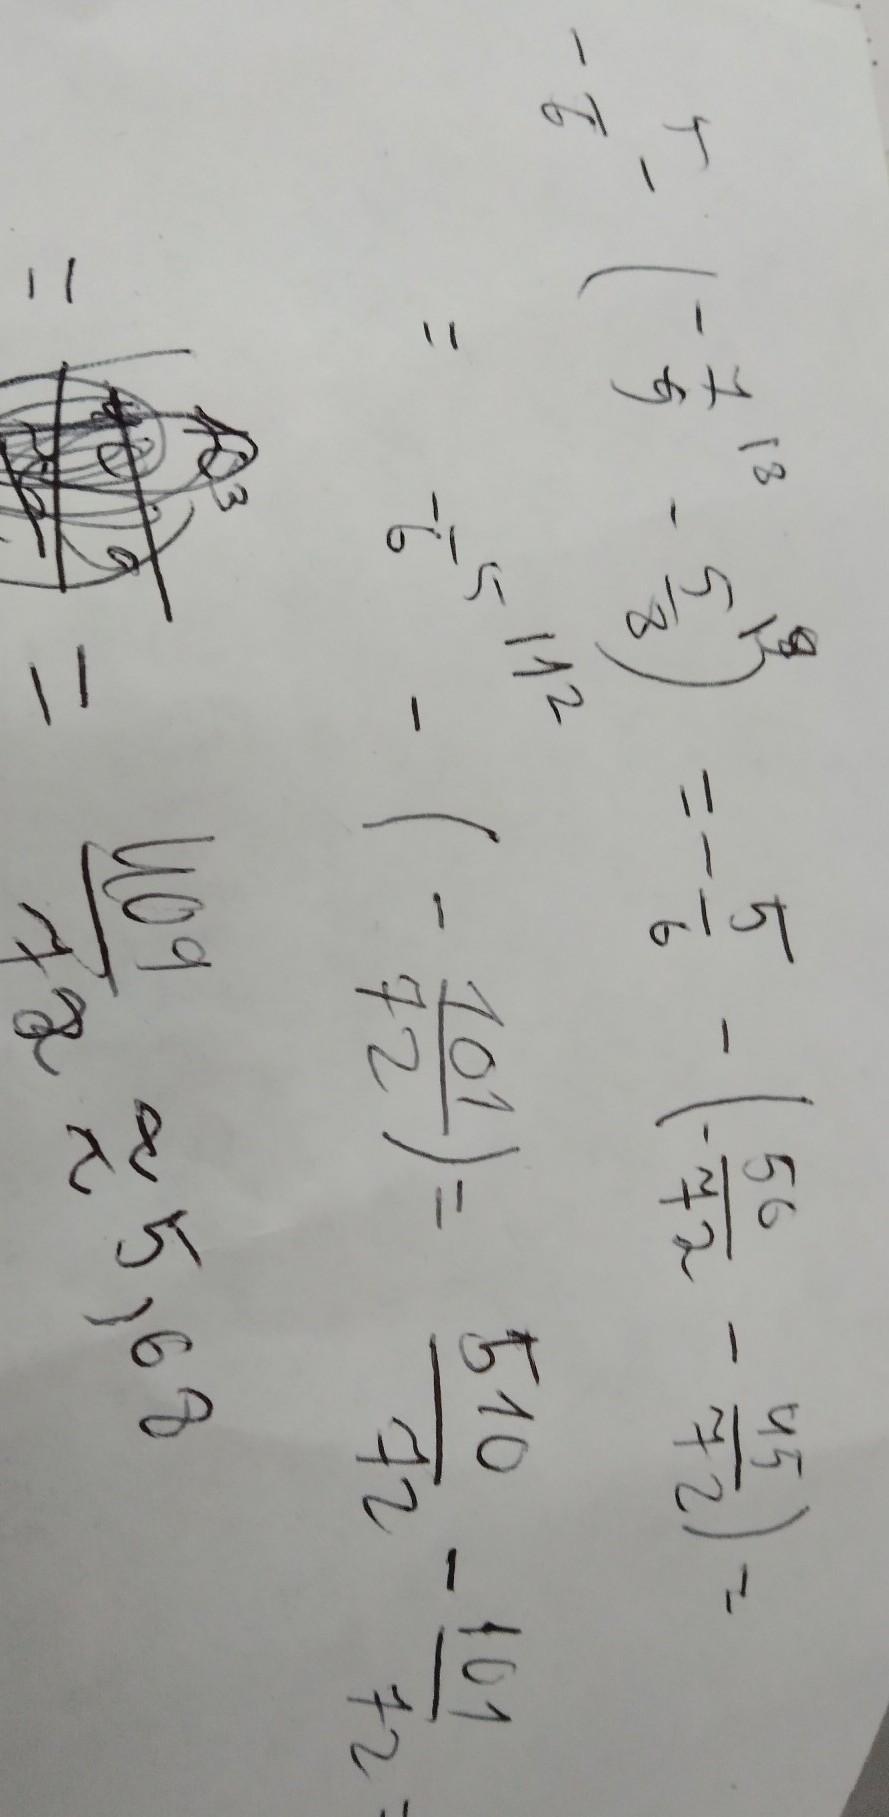 - 5/6 - ( - 7/9 |8 - 5/8 |9 ) = - 5/6 - ( - 56/72 - 45/72 ) =
= - 5/6 |12 - ( - 101/72 ) = 510/72 - 101/72 =
= = 409/72 ≈ ≈ 5,68